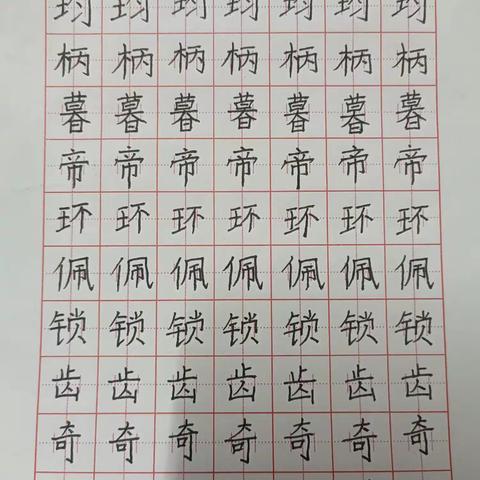 柄 柄 柄 柄 柄 柄 柄
暮 暮 暮 暮 暮 暮 暮
帝 帝 帝 帝 帝 帝 帝
环 环 环 环 环 环 环
佩 佩 佩 佩 佩 佩 佩
锁 锁 锁 锁 锁 锁 锁
齿 齿 齿 齿 齿 齿 齿
奇 奇 奇 奇 奇 奇 奇